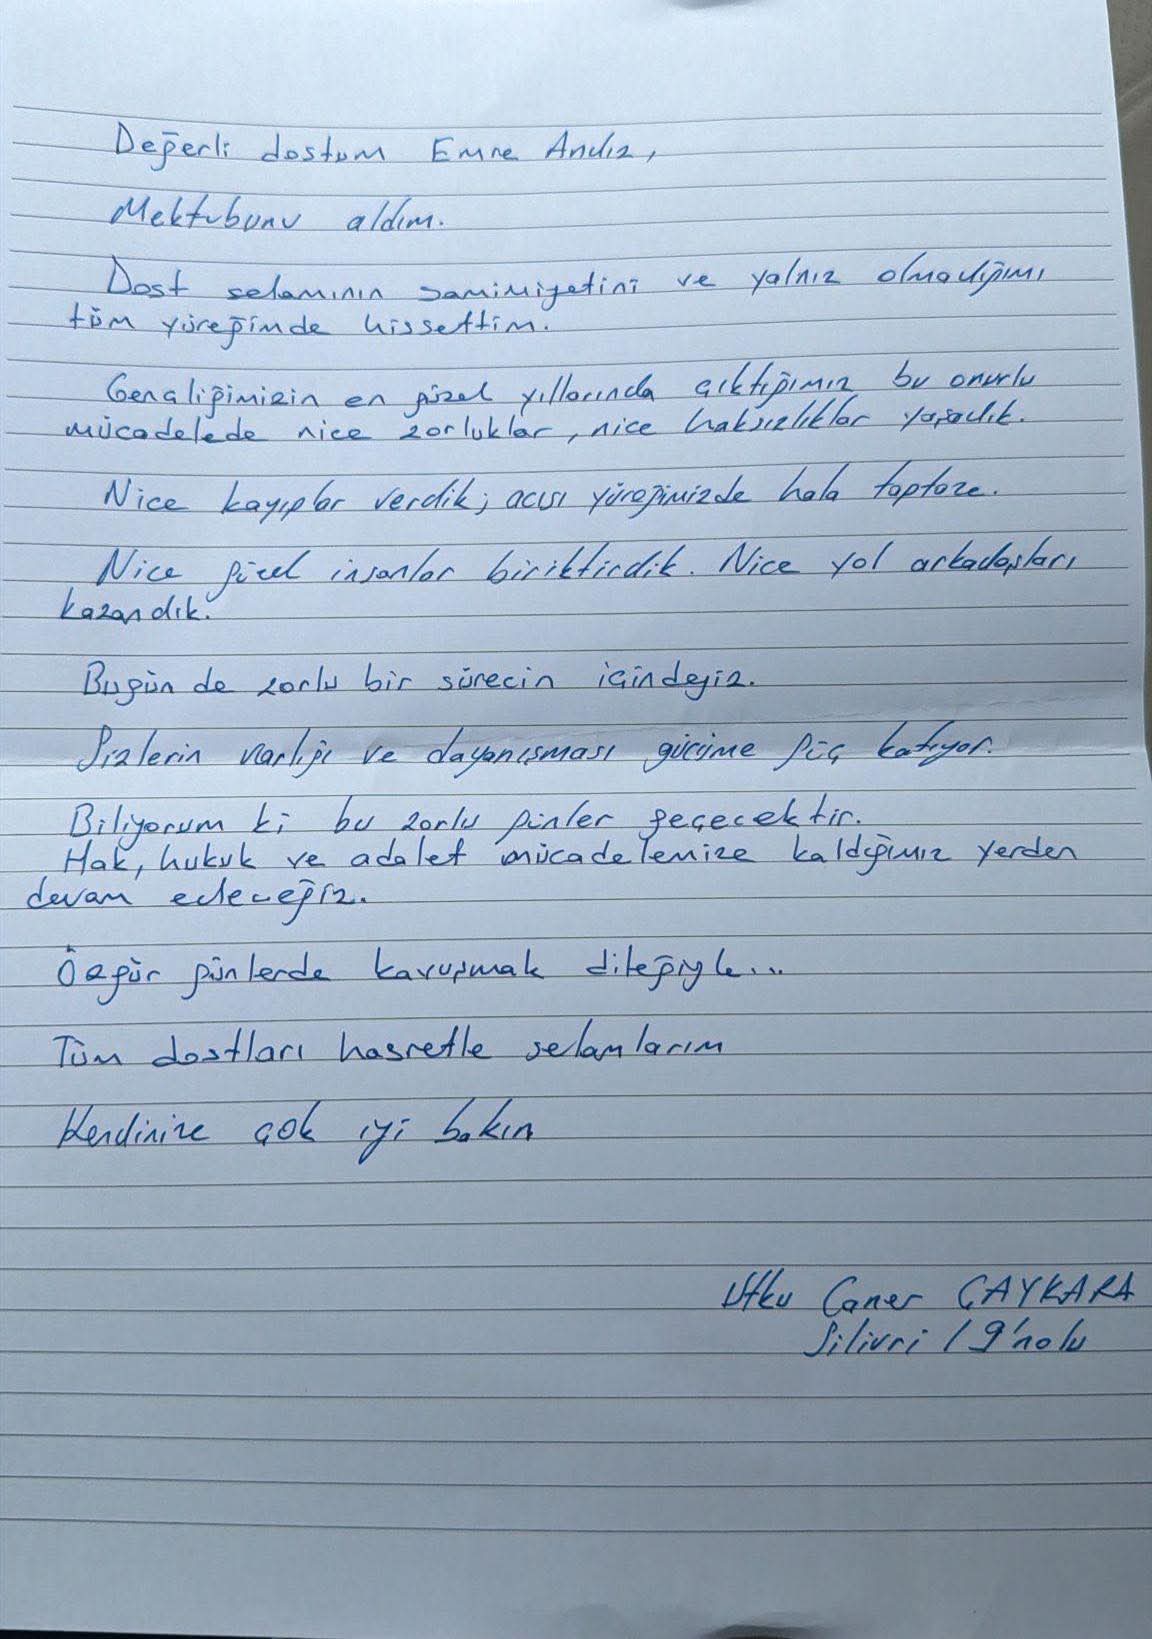 Değerli dostum Emre Andız,
Mektubunu aldım.
Dost selamının samimiyetini ve yalnız olmadığımı
tüm yüreğimde hissettim.
Gençliğimizin en güzel yıllarında çıktığımız bu onurlu
mücadelede nice zorluklar, nice haksızlıklar yaşadık.
Nice kayıplar verdik; acısı yüreğimizde hala taptaze.
Nice güzel insanlar biriktirdik. Nice yol arkadaşları
kazandık.
Bugün de zorlu bir sürecin içindeyiz.
Sizlerin varlığı ve dayanışması gücüme güç katıyor.
Biliyorum ki bu zorlu günler geçecektir.
Hak, hukuk ve adalet mücadelemize kaldığımız yerden
devam edeceğiz.
Özgür günlerde kavuşmak dileğiyle...
Tüm dostları hasretle selamlarım
Kendinize çok iyi bakın
Utku Caner ÇAYKARA
Silivri / 9'nolu